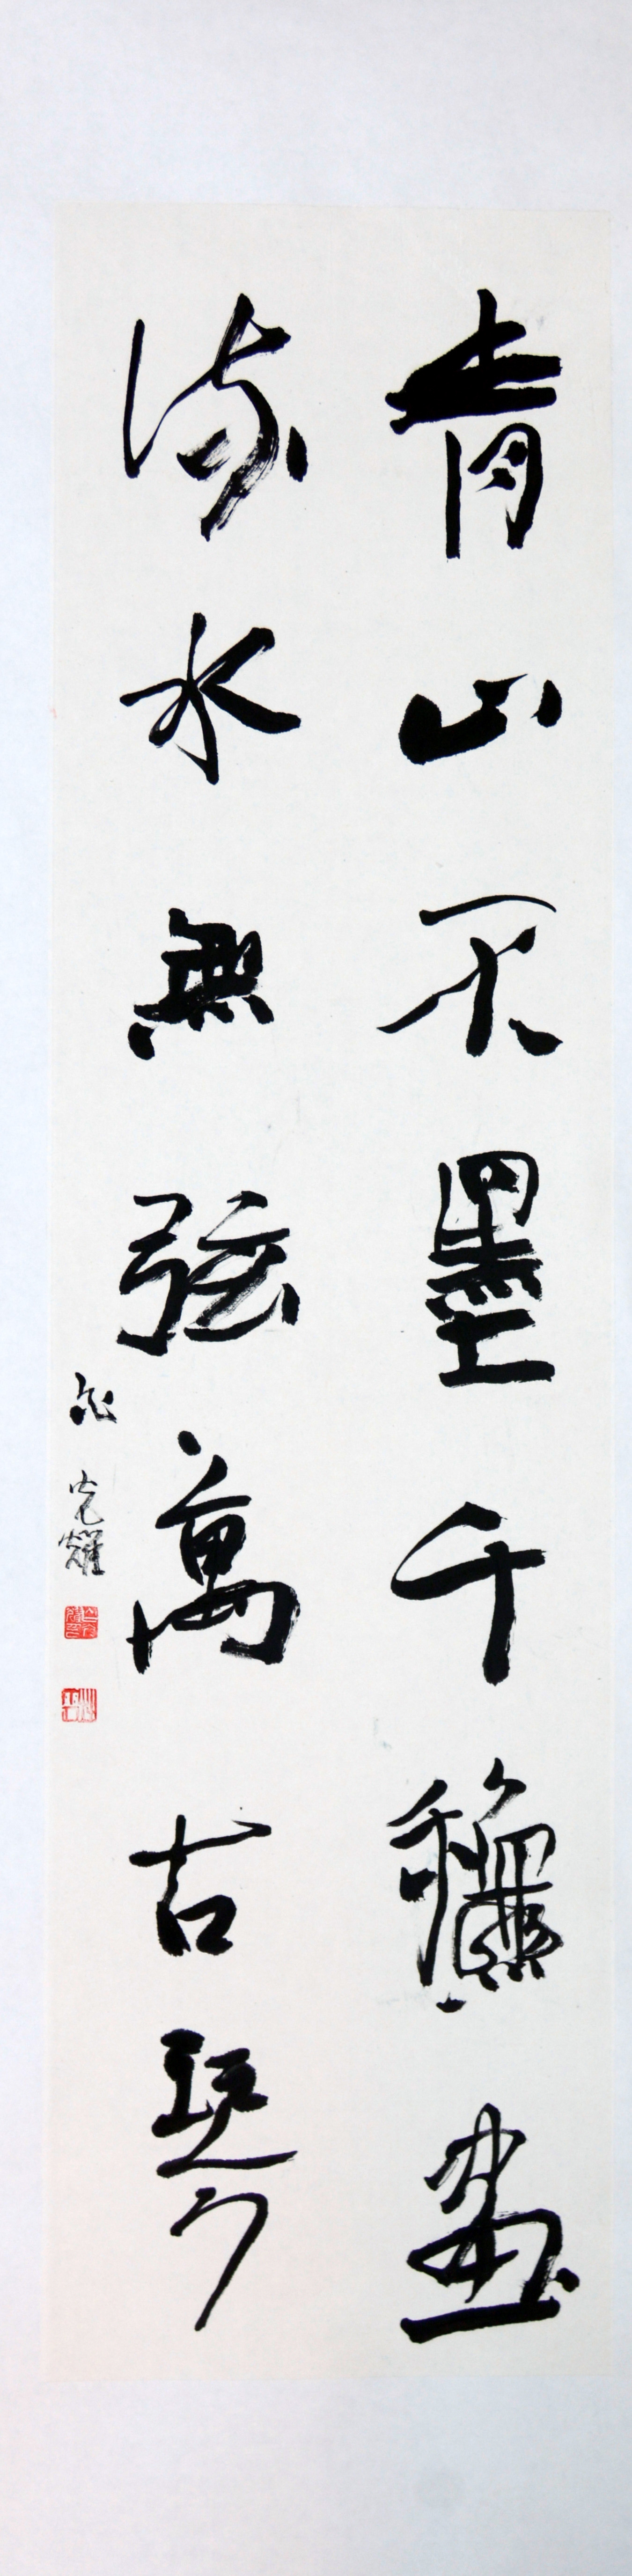 青山不墨千穐畫
流水無弦萬古琴
耀